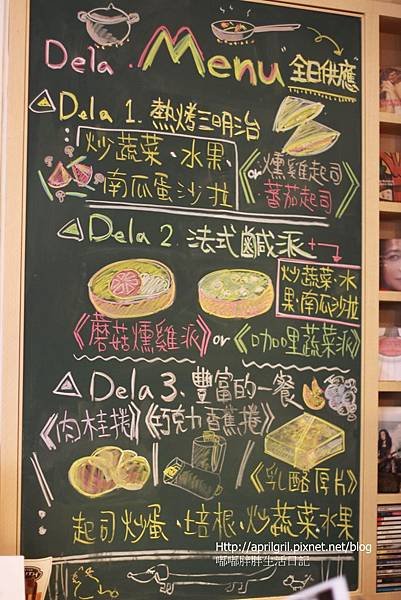 Dela . Menu "全日供應"
Dela 1. 熱烤三明治
炒蔬菜、水果、
南瓜蛋沙拉
or
《燻雞起司
蕃茄起司》
Dela 2. 法式鹹派 + →
炒蔬菜、水
果、南瓜沙拉
《蘑菇燻雞派》or《咖哩蔬菜派》
Dela 3. 豐富的一餐
《肉桂捲》《巧克力香蕉捲》
《乳酪厚片》
起司炒蛋、培根、炒蔬菜、水果
Http://aprilgril.pixnet.net/blog
嘟嘟胖胖生活日記